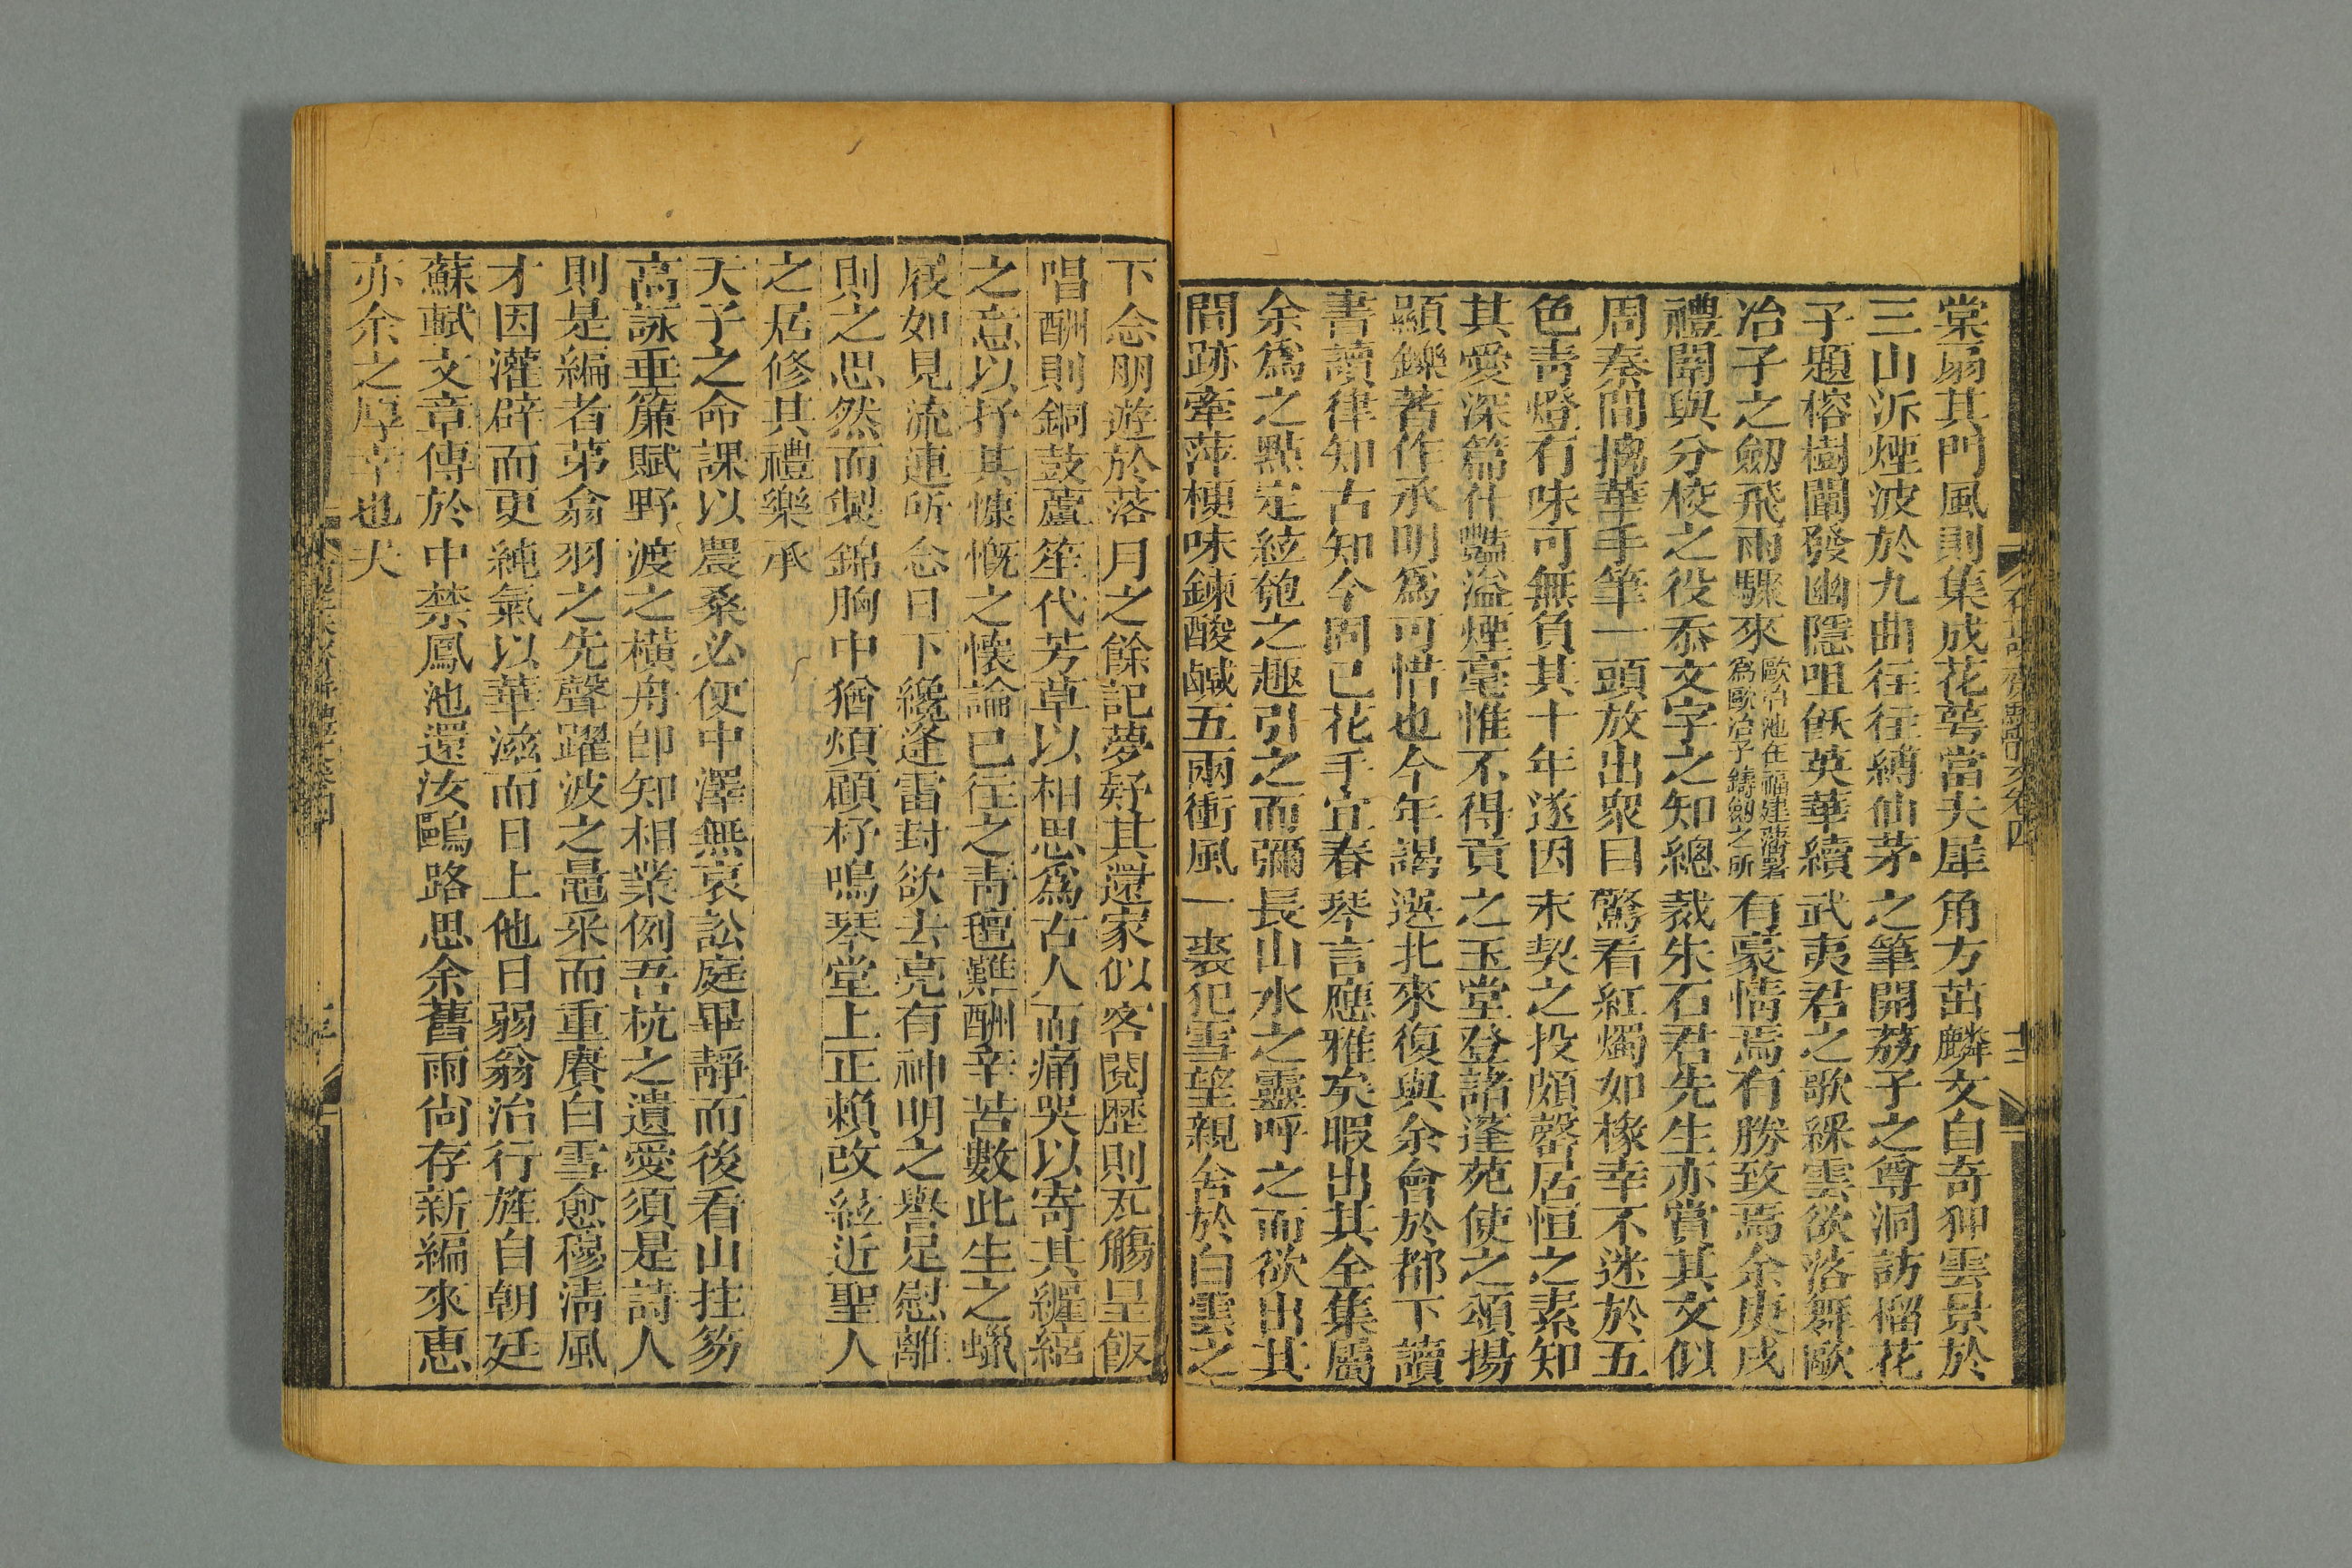 棠扇其門風則集成花萼當夫犀角方茁麟文自奇狎雲景於
三山泝煙波於九曲往往縛仙茅之筆開荔子之尊洞訪榴花
子題榕樹闡發幽隱咀飫英華續武夷君之歌綵雲欲落舞歐
冶子之劒飛雨驟來歐冶池在福建藩署為歐冶子鑄劒之所有豪情焉有勝致焉余庚戌
禮闈與分校之役忝文字之知總裁朱石君先生亦賞其文似
周秦間摛華手筆一頭放出衆曰驚看紅燭如椽幸不迷於五
色靑燈有味可無負其十年遂因末契之投頗罄居恒之素知
其愛深篇什豔溢煙毫惟不得貢之玉堂登諸蓬苑使之頌揚
顯鑠著作承明爲可惜也今年謁選北來復與余會於都下讀
書讀律知古知今固已花手宜春琴言應雅矣暇出其全集屬
余爲之點定絃匏之趣引之而彌長山水之靈呼之而欲出其
間跡牽萍梗味鍊酸鹹五兩衝風一裘犯雪望親舍於白雲之
下念朋遊於落月之餘記夢好其還家似客閱歷則瓦觴呈飯
唱酬則銅鼓蘆笙代芳草以相思爲古人而痛哭以寄其纏綿
之意以抒其慷慨之懷論已往之靑氊難酬辛苦數此生之蠟
屐如見流連所念日下纔逢雷封欲去亮有神明之譽足慰離
則之思然而製錦胸中猶煩顧杼鳴琴堂上正賴改絃近聖人
之居修其禮樂承
天子之命課以農桑必使中澤無哀訟庭畢靜而後看山拄笏
高詠垂簾賦野渡之橫舟卽知相業例吾杭之遺愛須是詩人
則是編者第翁羽之先聲躍波之鼂采而重賡白雪愈穆淸風
才因灌辟而更純氣以華滋而日上他日弱翁治行旌自朝廷
蘇軾文章傳於中禁鳳池還汝鷗路思余舊雨尙存新編來惠
亦余之厚幸也夫